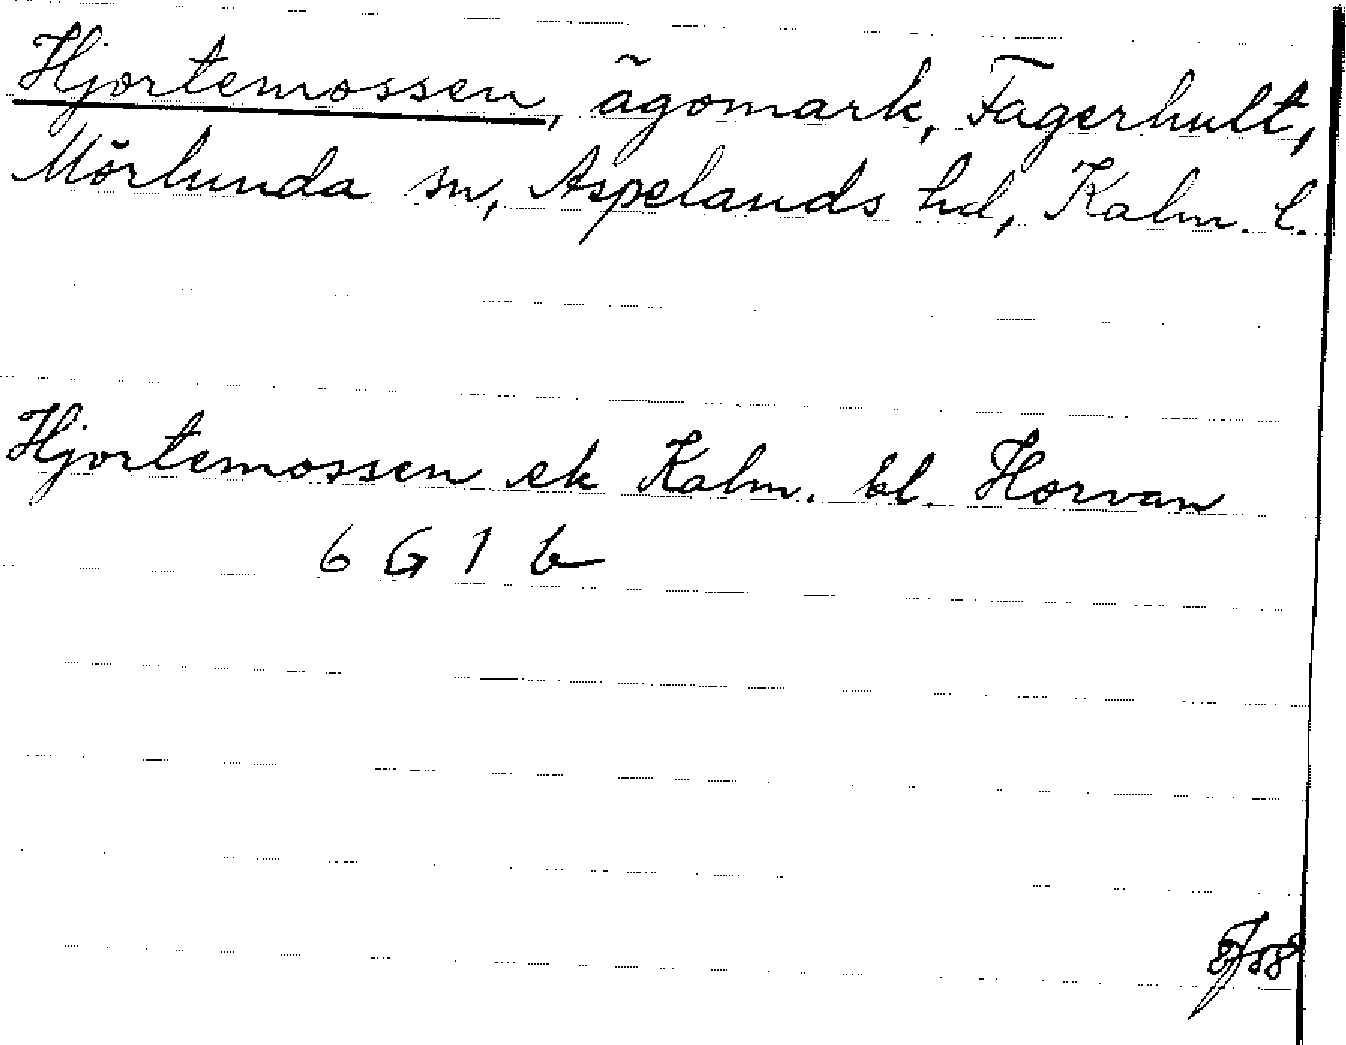 Hjortemossen, ägomark, Fagerhult,
Mörlunda sn, Aspelands hd, Kalm. l.
Hjortemossen ek Kalm. bl. Horvan
6 G 1 b